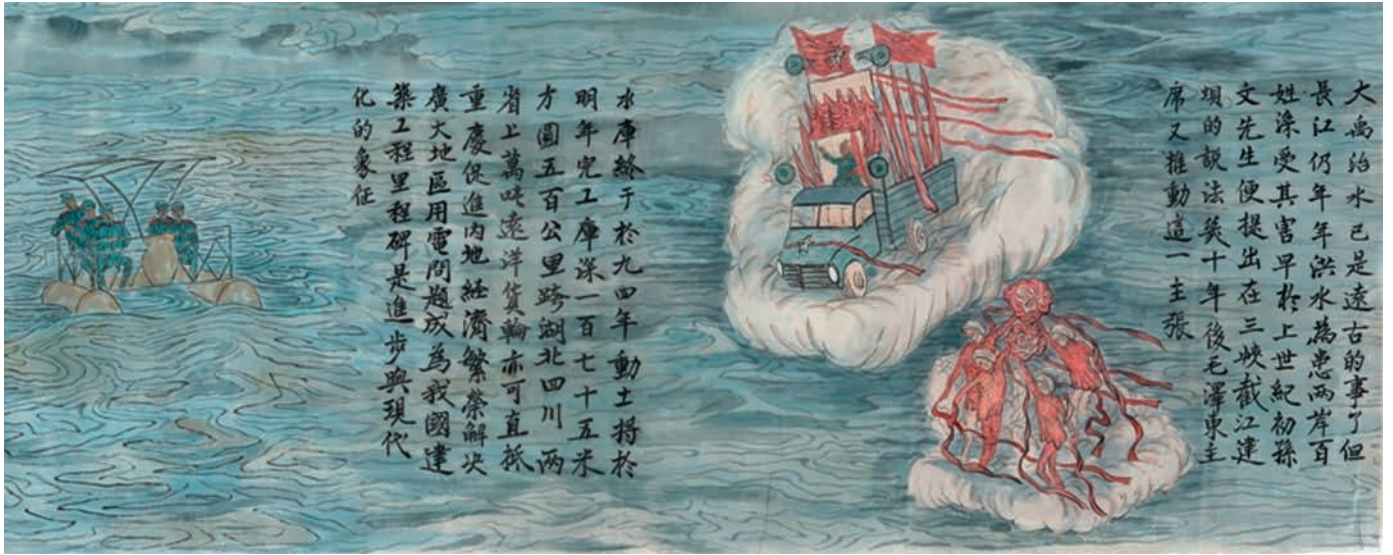 大禹治水已是遠古的事了但
長江仍年年洪水為患兩岸百
姓深受其害早於上世紀初孫
文先生便提出在三峽截江建
垻的説法幾十年後毛澤東主
席又推動這一主張
水庫終于於九四年動土將於
明年完工庫深一百七十五米
方圓五百公里跨湖北四川兩
省上萬吨遠洋貨輪亦可直抵
重慶促進内地經濟繁榮解决
廣大地區用電問題成為我國建
築工程里程碑是進步與現代
化的象征